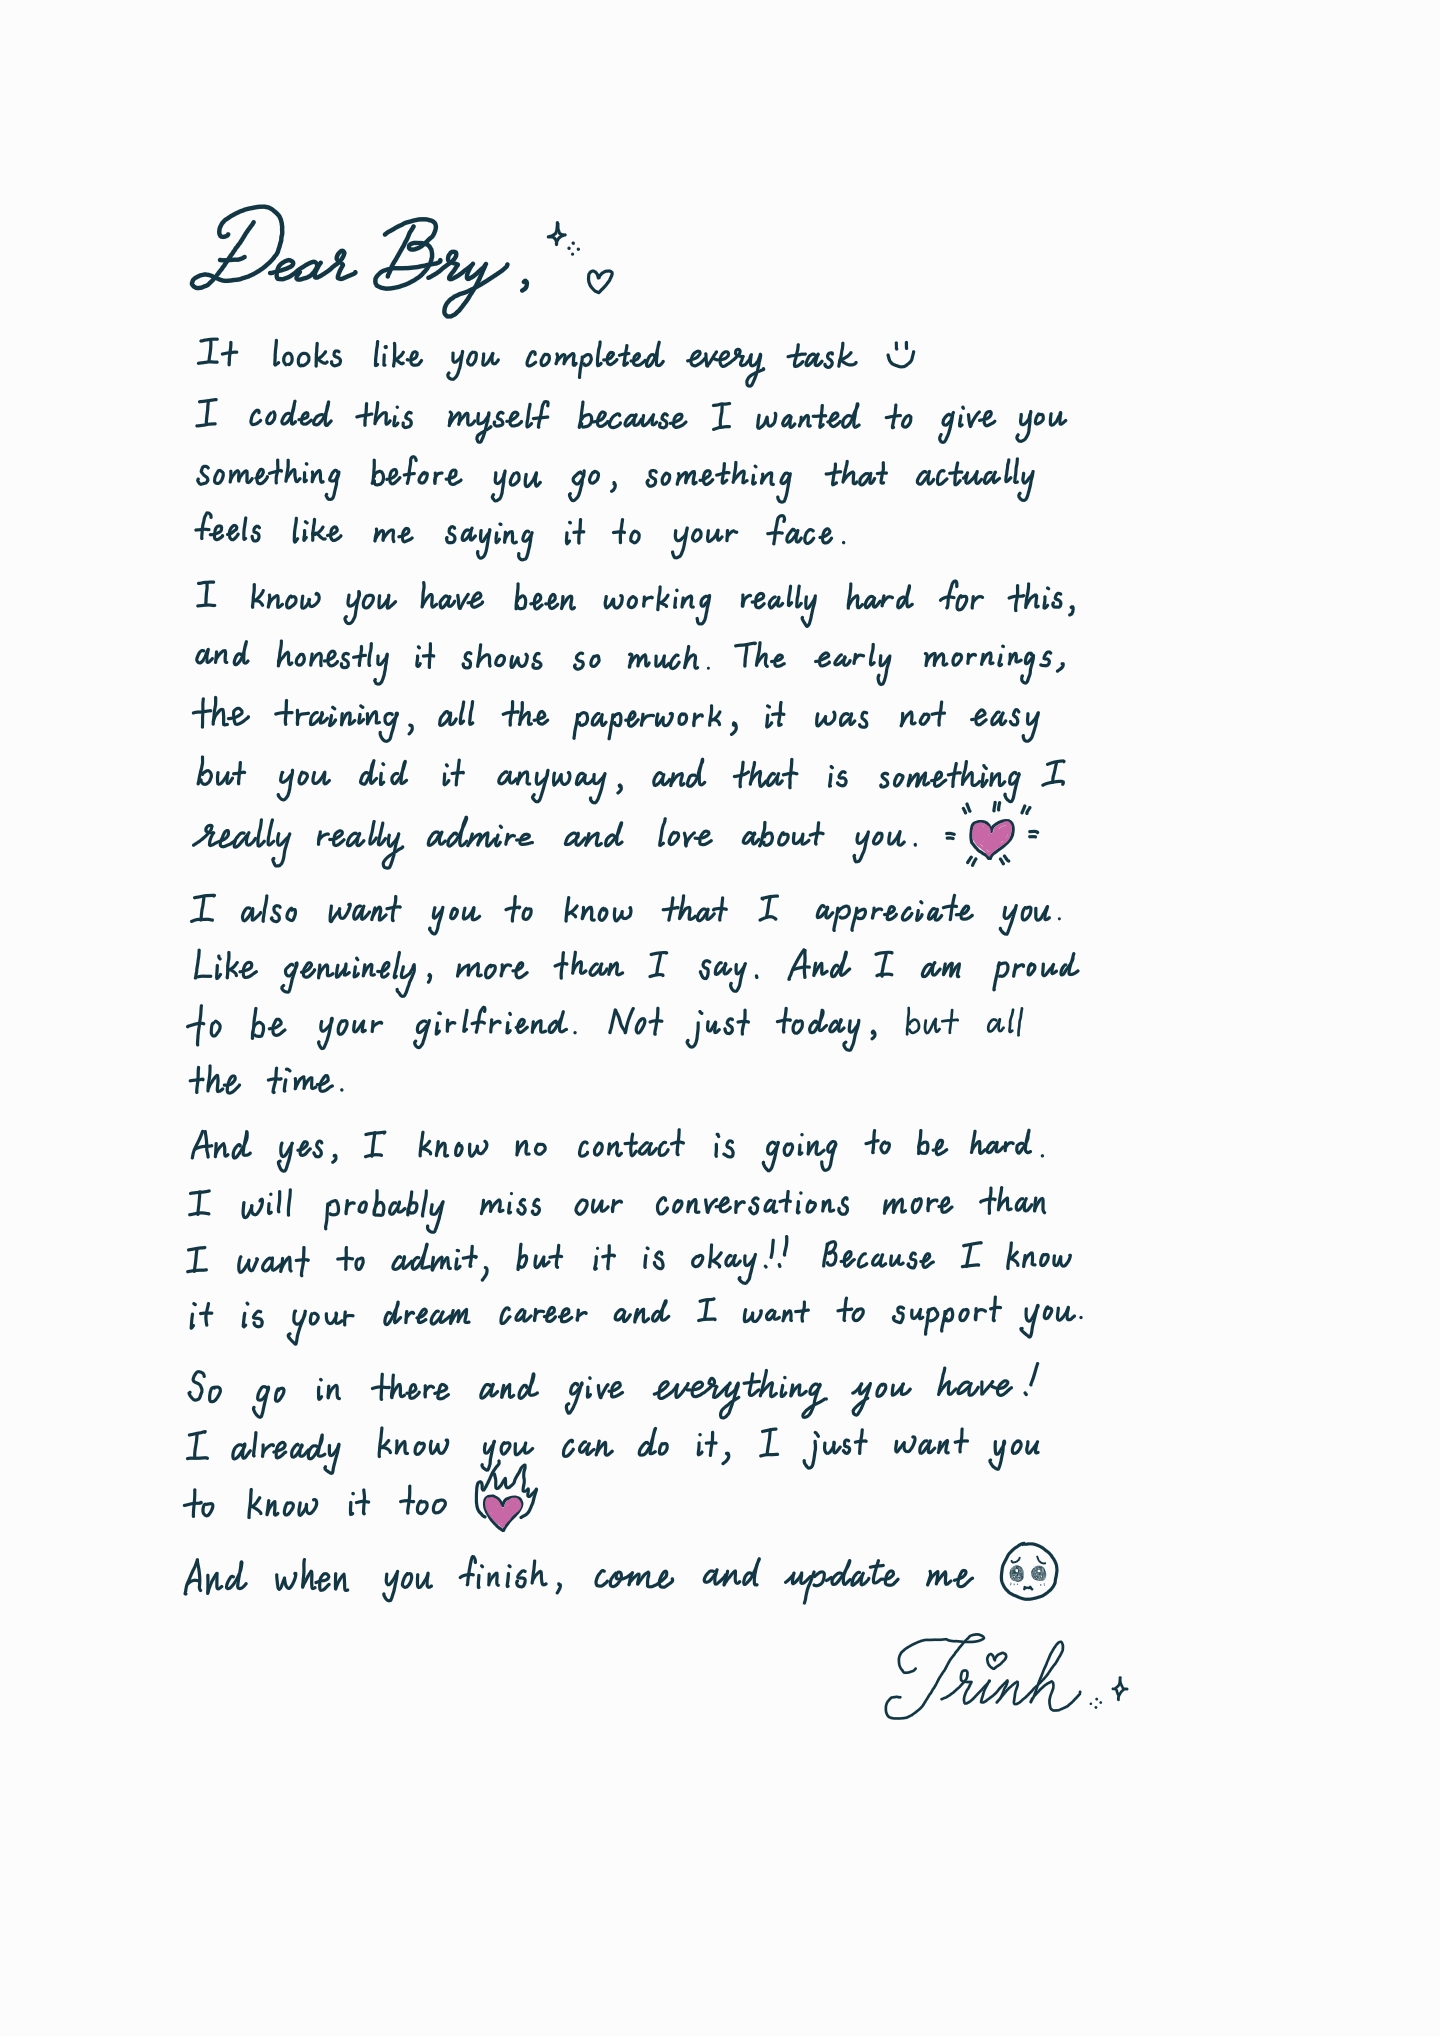 Dear Bry,
It looks like you completed every task
I coded this myself because I wanted to give you
something before you go, something that actually
feels like me saying it to your face.
I know you have been working really hard for this,
and honestly it shows so much. The early mornings,
the training, all the paperwork, it was not easy
but you did it anyway, and that is something I
really really admire and love about you.
I also want you to know that I appreciate you.
Like genuinely, more than I say. And I am proud
to be your girlfriend. Not just today, but all
the time.
And yes, I know no contact is going to be hard.
I will probably miss our conversations more than
I want to admit, but it is okay!! Because I know
it is your dream career and I want to support you.
So go in there and give everything you have!
I already know you can do it, I just want you
to know it too
And when you finish, come and update me
Trinh